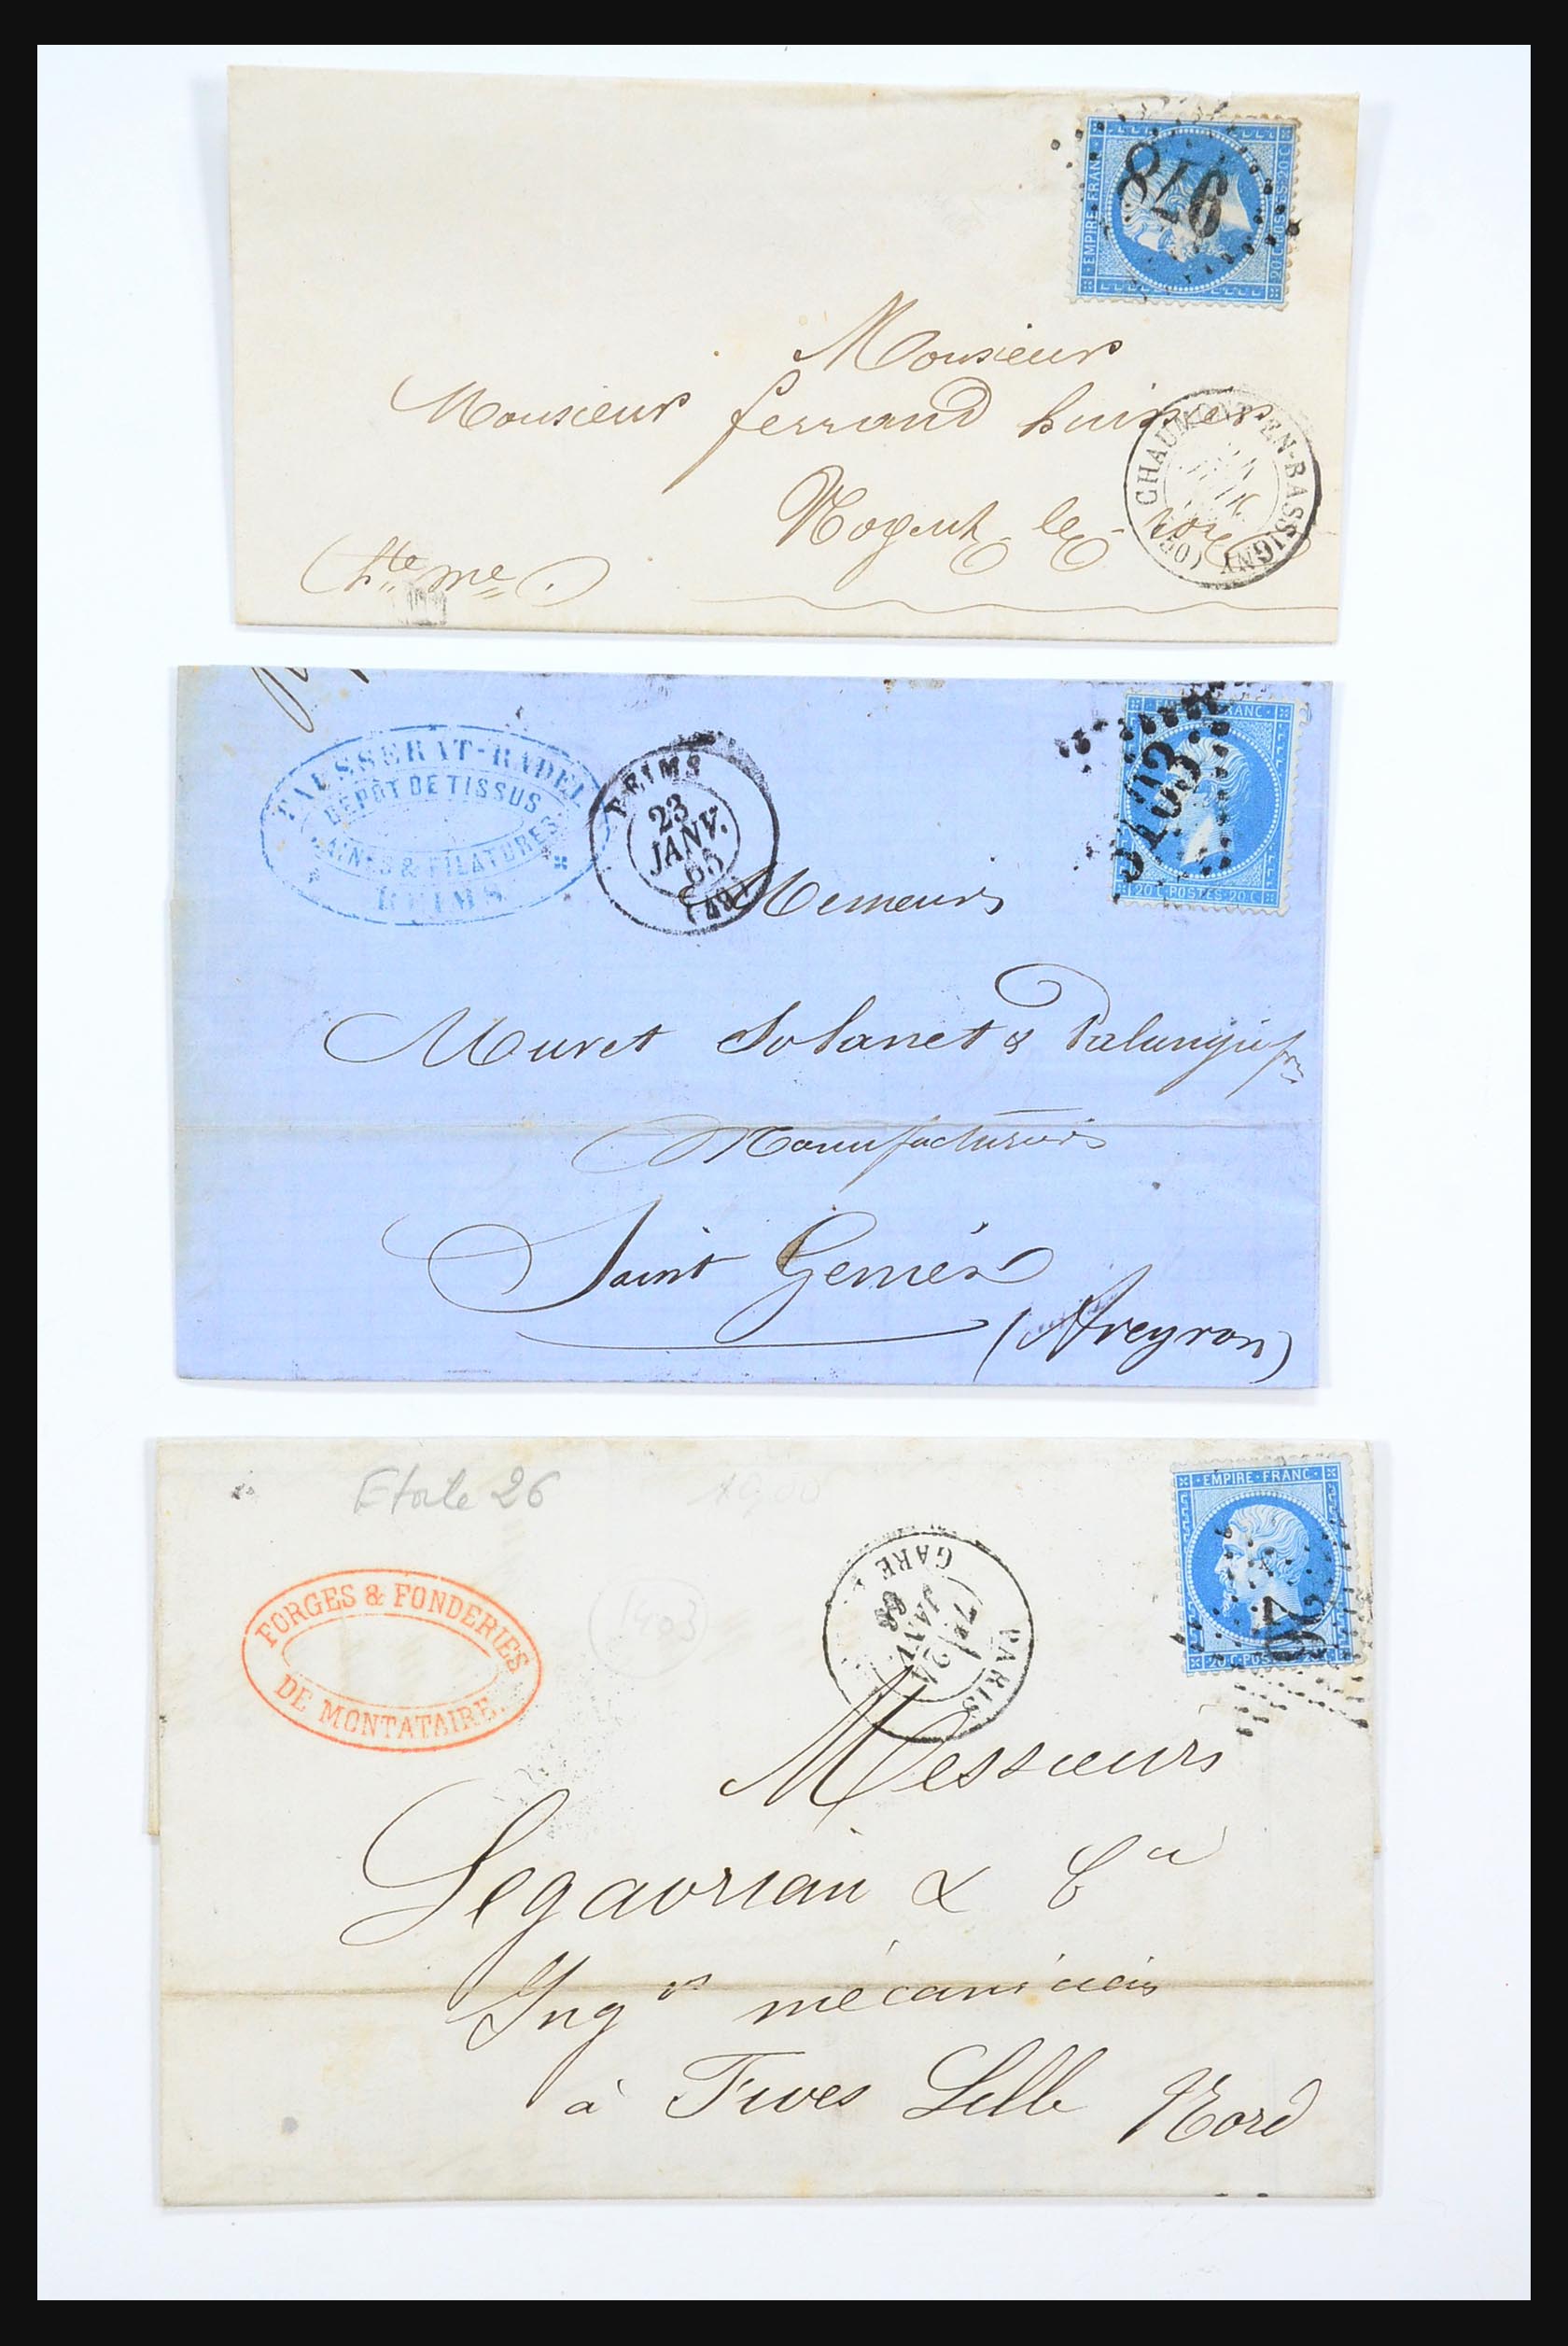 EMPIRE FRANC
20 C POSTES 20 C
976
Monsieur
Monsieur ferrand huissier
CHAUMONT-EN-BASSIGNY
Nogent-le-roi
(hte me.)
EMPIRE FRANC
20 C POSTES 20 C
3103
DEPOT DE TISSUS
LAINES & FILATURES
REIMS
REIMS
23
JANV.
65
(49)
Messieurs
Muret Solanet &
Manufacturiers
Saint Geniès
(Aveyron)
Etoile 26
EMPIRE FRANC
20 C POS
26
1403
FORGES & FONDERIES
DE MONTATAIRE.
PARIS
GARE
JANV
68
Messieurs
Legavrian & Cie
Ingrs mécaniciens
à Fives Lille Nord